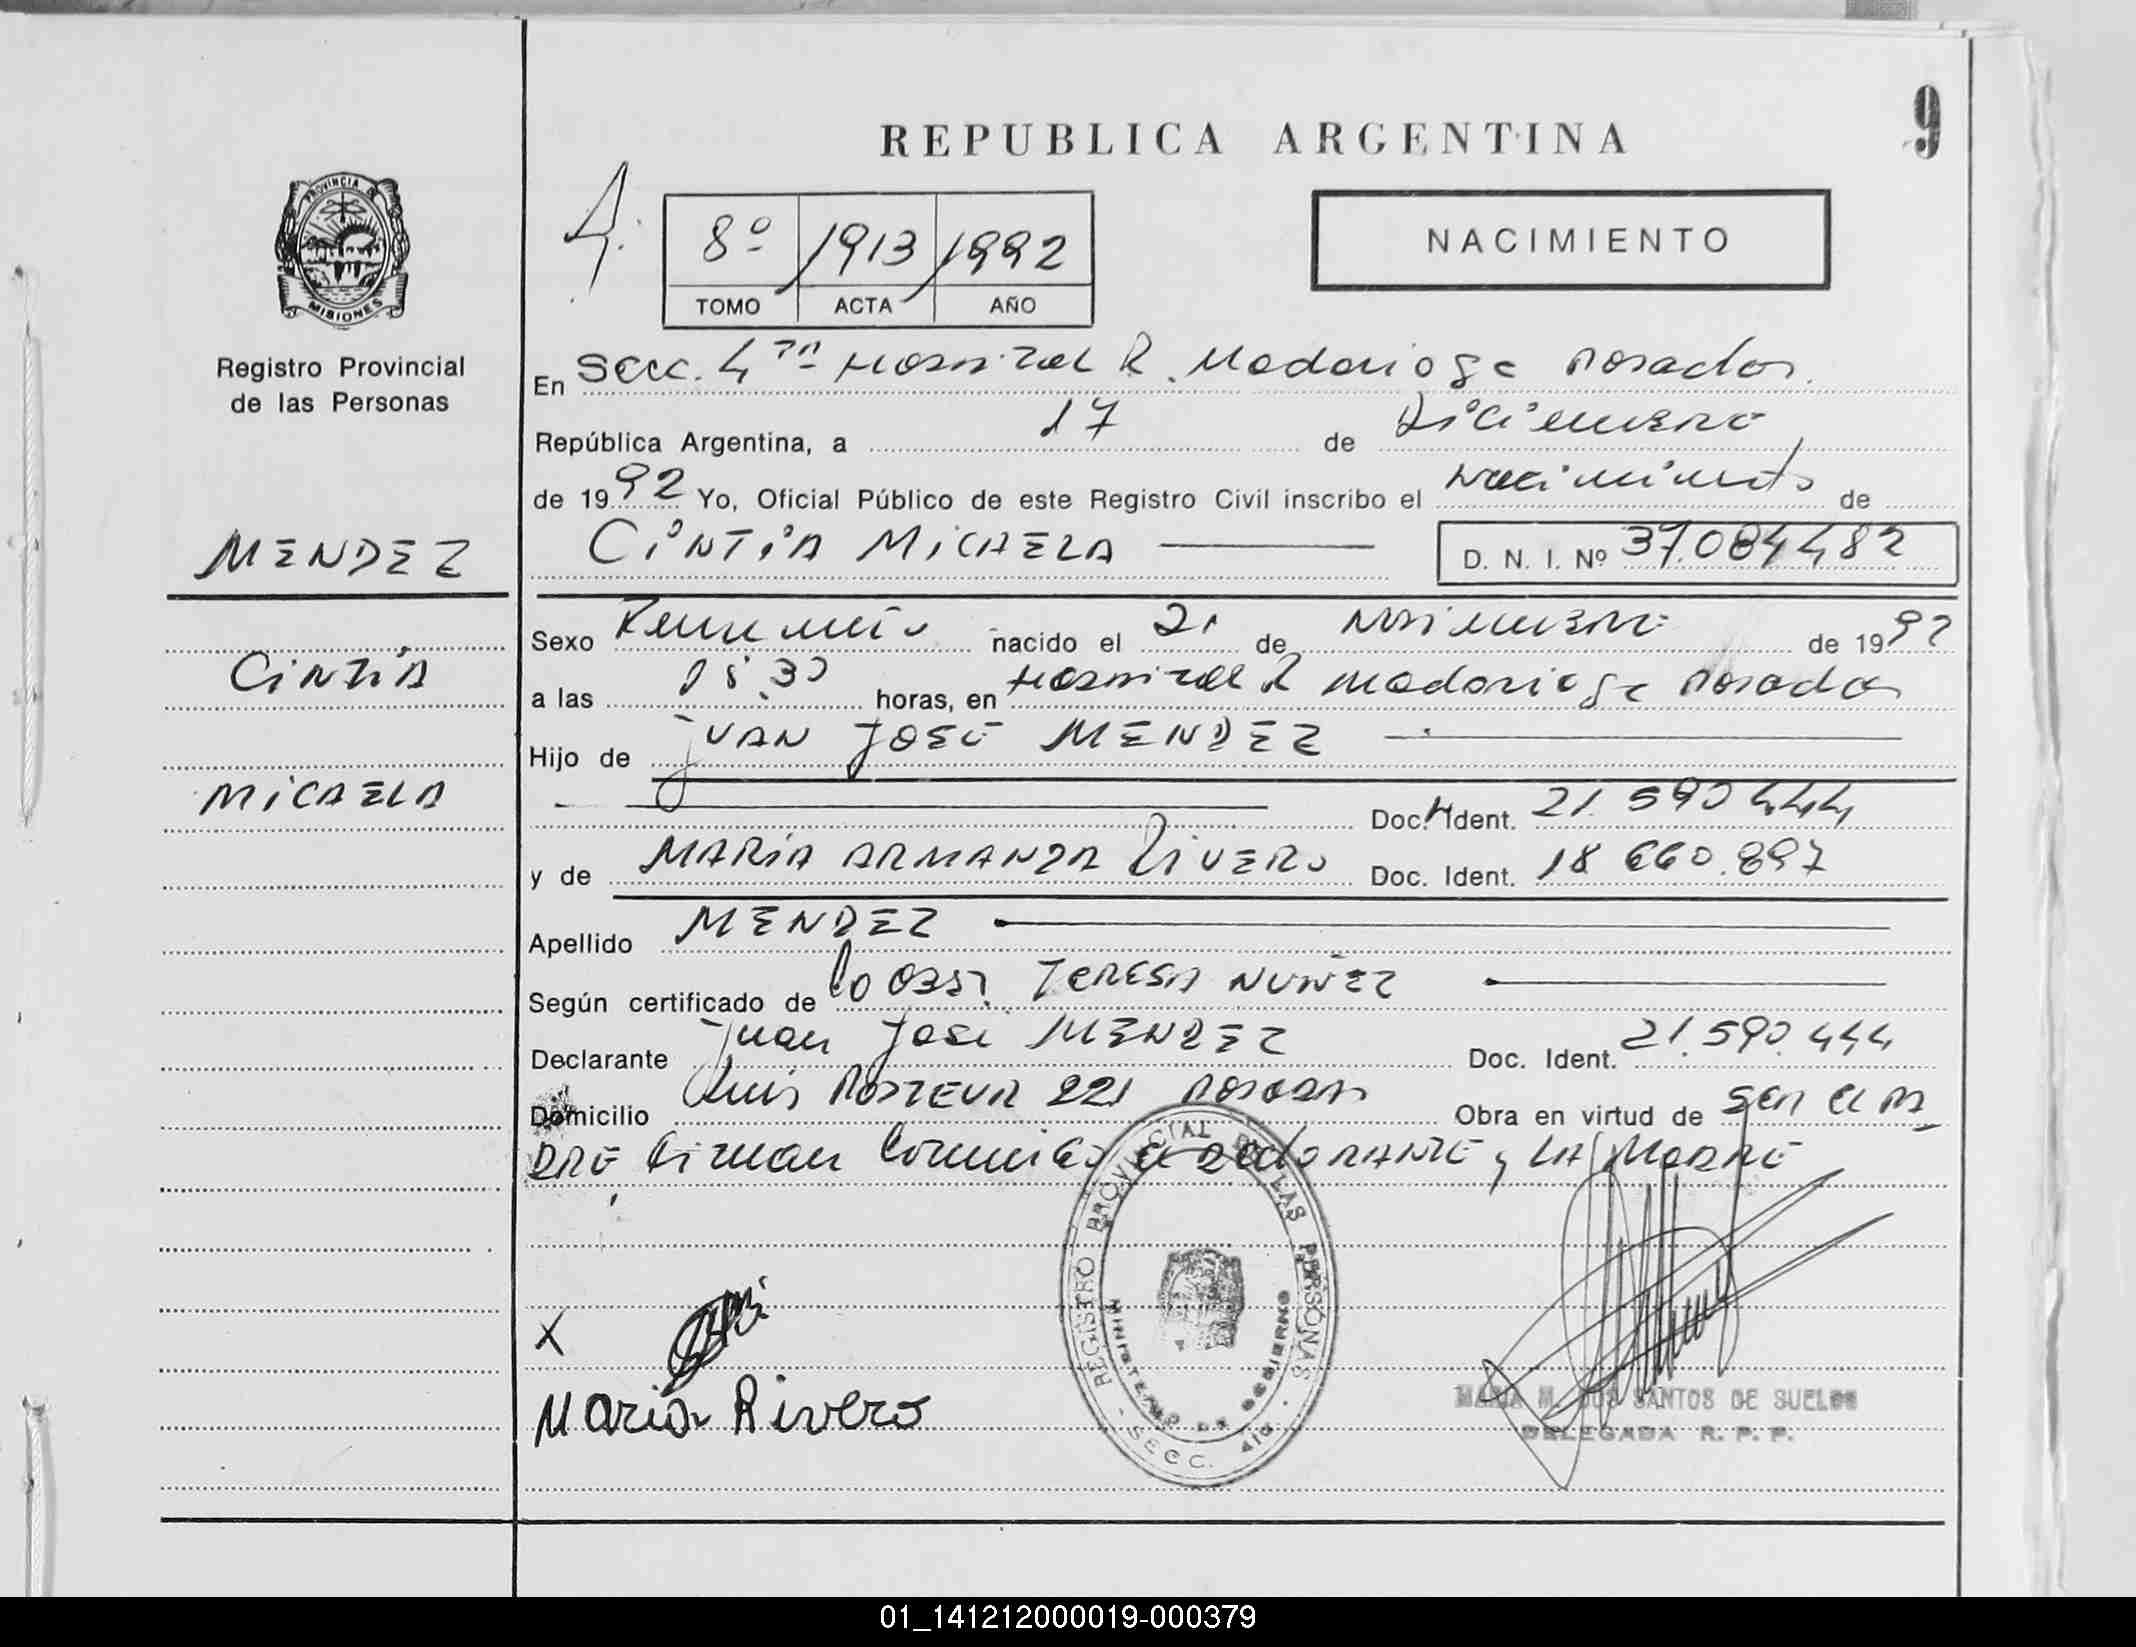 9
REPUBLICA ARGENTINA
PROVINCIA DE
MISIONES
8º 1913 1992
TOMO ACTA AÑO
NACIMIENTO
Registro Provincial
de las Personas
En Secc. 4ta Hospital R. Madariaga Posadas.
República Argentina, a 17 de Diciembre
de 1992 Yo, Oficial Público de este Registro Civil inscribo el Nacimiento de
CINTIA MICAELA
D. N. I. Nº 37.084482
MENDEZ
CINTIA
MICAELA
Sexo Femenino nacido el 21 de Noviembre de 1992
a las horas, en Hospital R Madariaga Posadas
Hijo de JUAN JOSÉ MENDEZ
Doc. Ident. 21.590444
y de MARIA ARMANDA RIVERO Doc. Ident. 18660.897
Apellido MENDEZ
Según certificado de la Obst. TERESA NUÑEZ
Declarante Juan José MENDEZ Doc. Ident. 21.590.444
Domicilio Luis PASTEUR 221 Posadas Obra en virtud de Ser el PA
DRE Firman Conmigo el declarante y LA MADRE
X
Maria Rivero
REGISTRO PROVINCIAL DE LAS PERSONAS
MINISTERIO DE GOBIERNO
SECC. 4ta.
MARIA M. DOS SANTOS DE SUELDO
DELEGADA R. P. P.
01_141212000019-000379